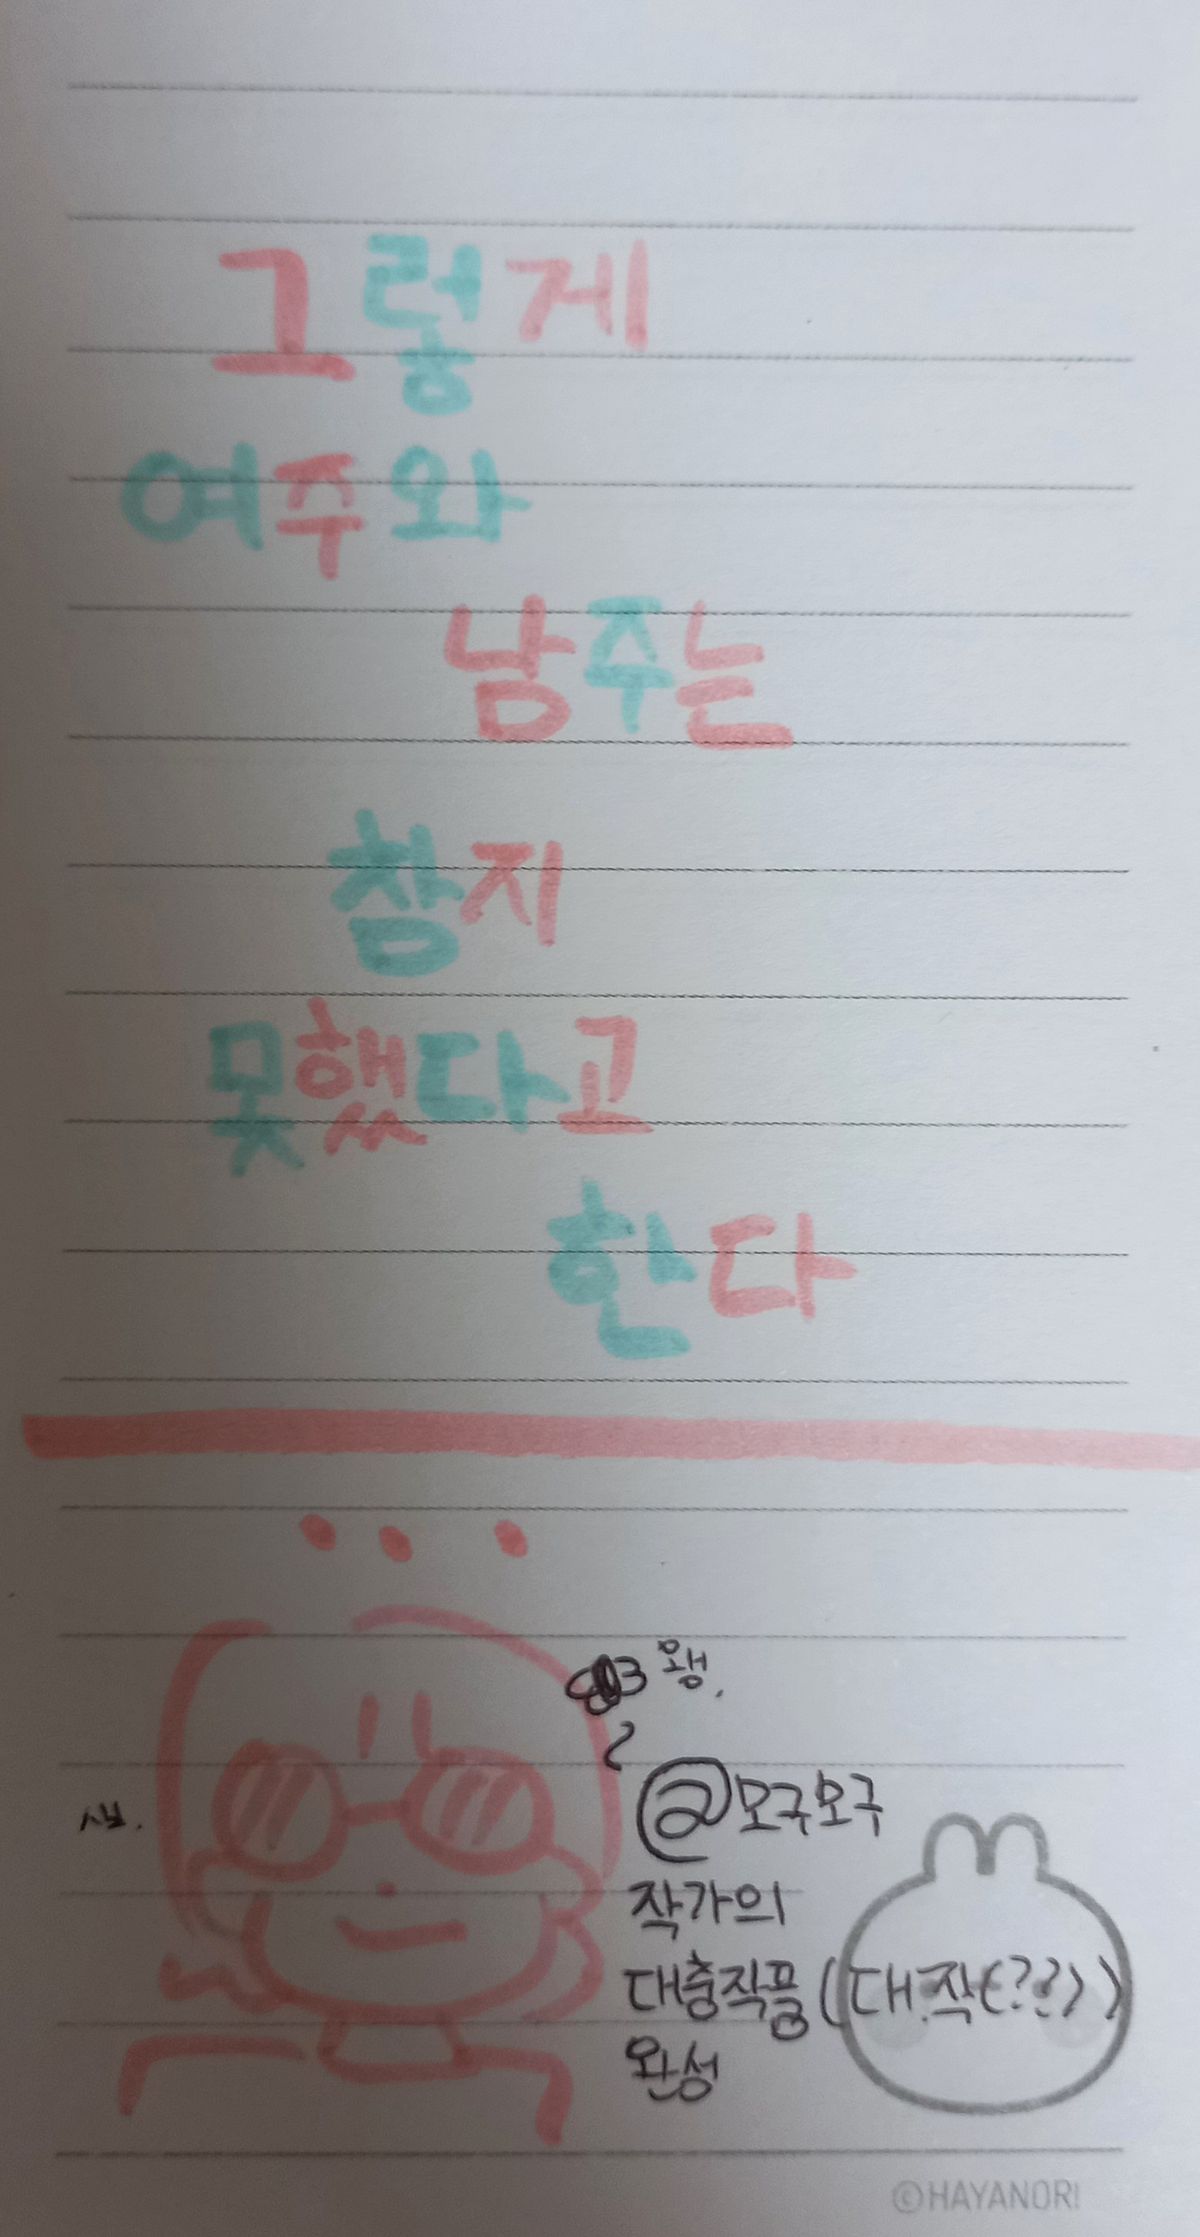 그렇게
여주와
남주는
참지
못했다고
한다
왱.
@모구모구
작가의
대충작품 (대작(??))
완성
©HAYANORI